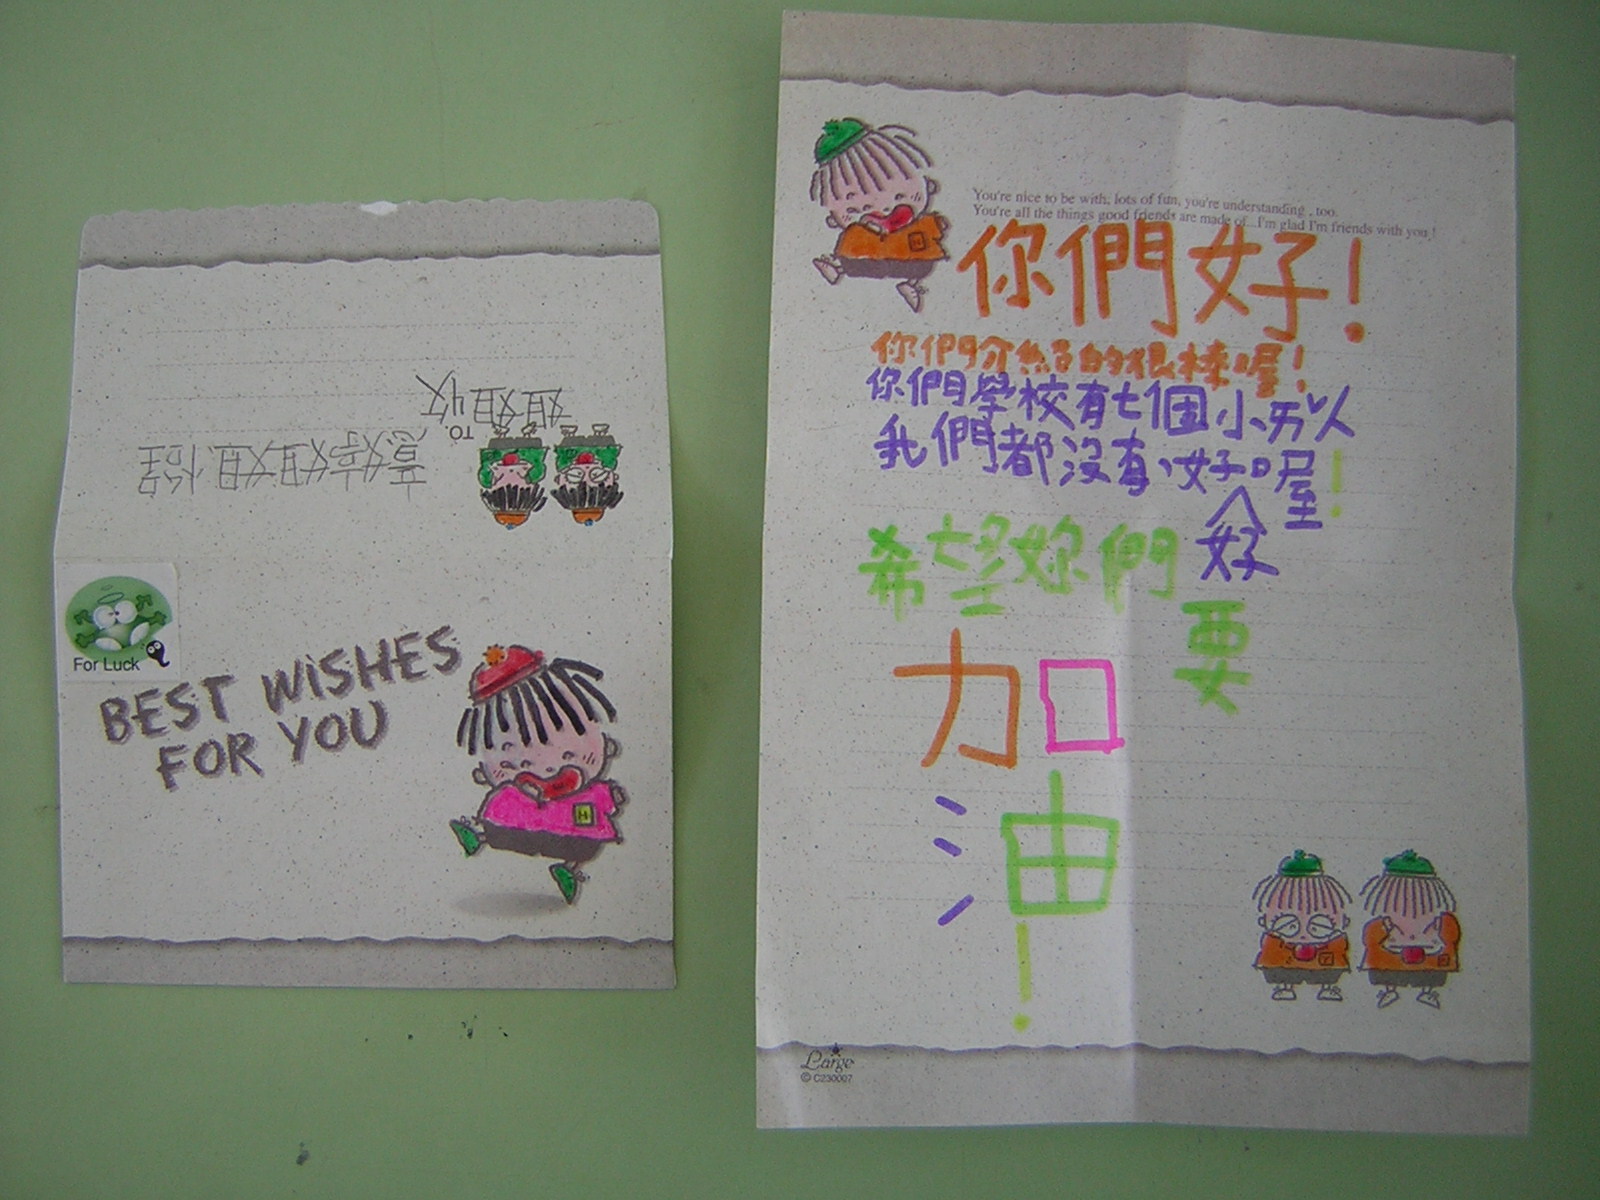 For Luck
BEST WISHES
FOR YOU
TO.
You're nice to be with, lots of fun, you're understanding , too.
You're all the things good friends are made of...I'm glad I'm friends with you !
你們好!
你們介紹的很棒喔!
你們學校有七個小男人
我們都沒有,好喔!
好
希望妳們
要
加
油
!
Large
© C230007